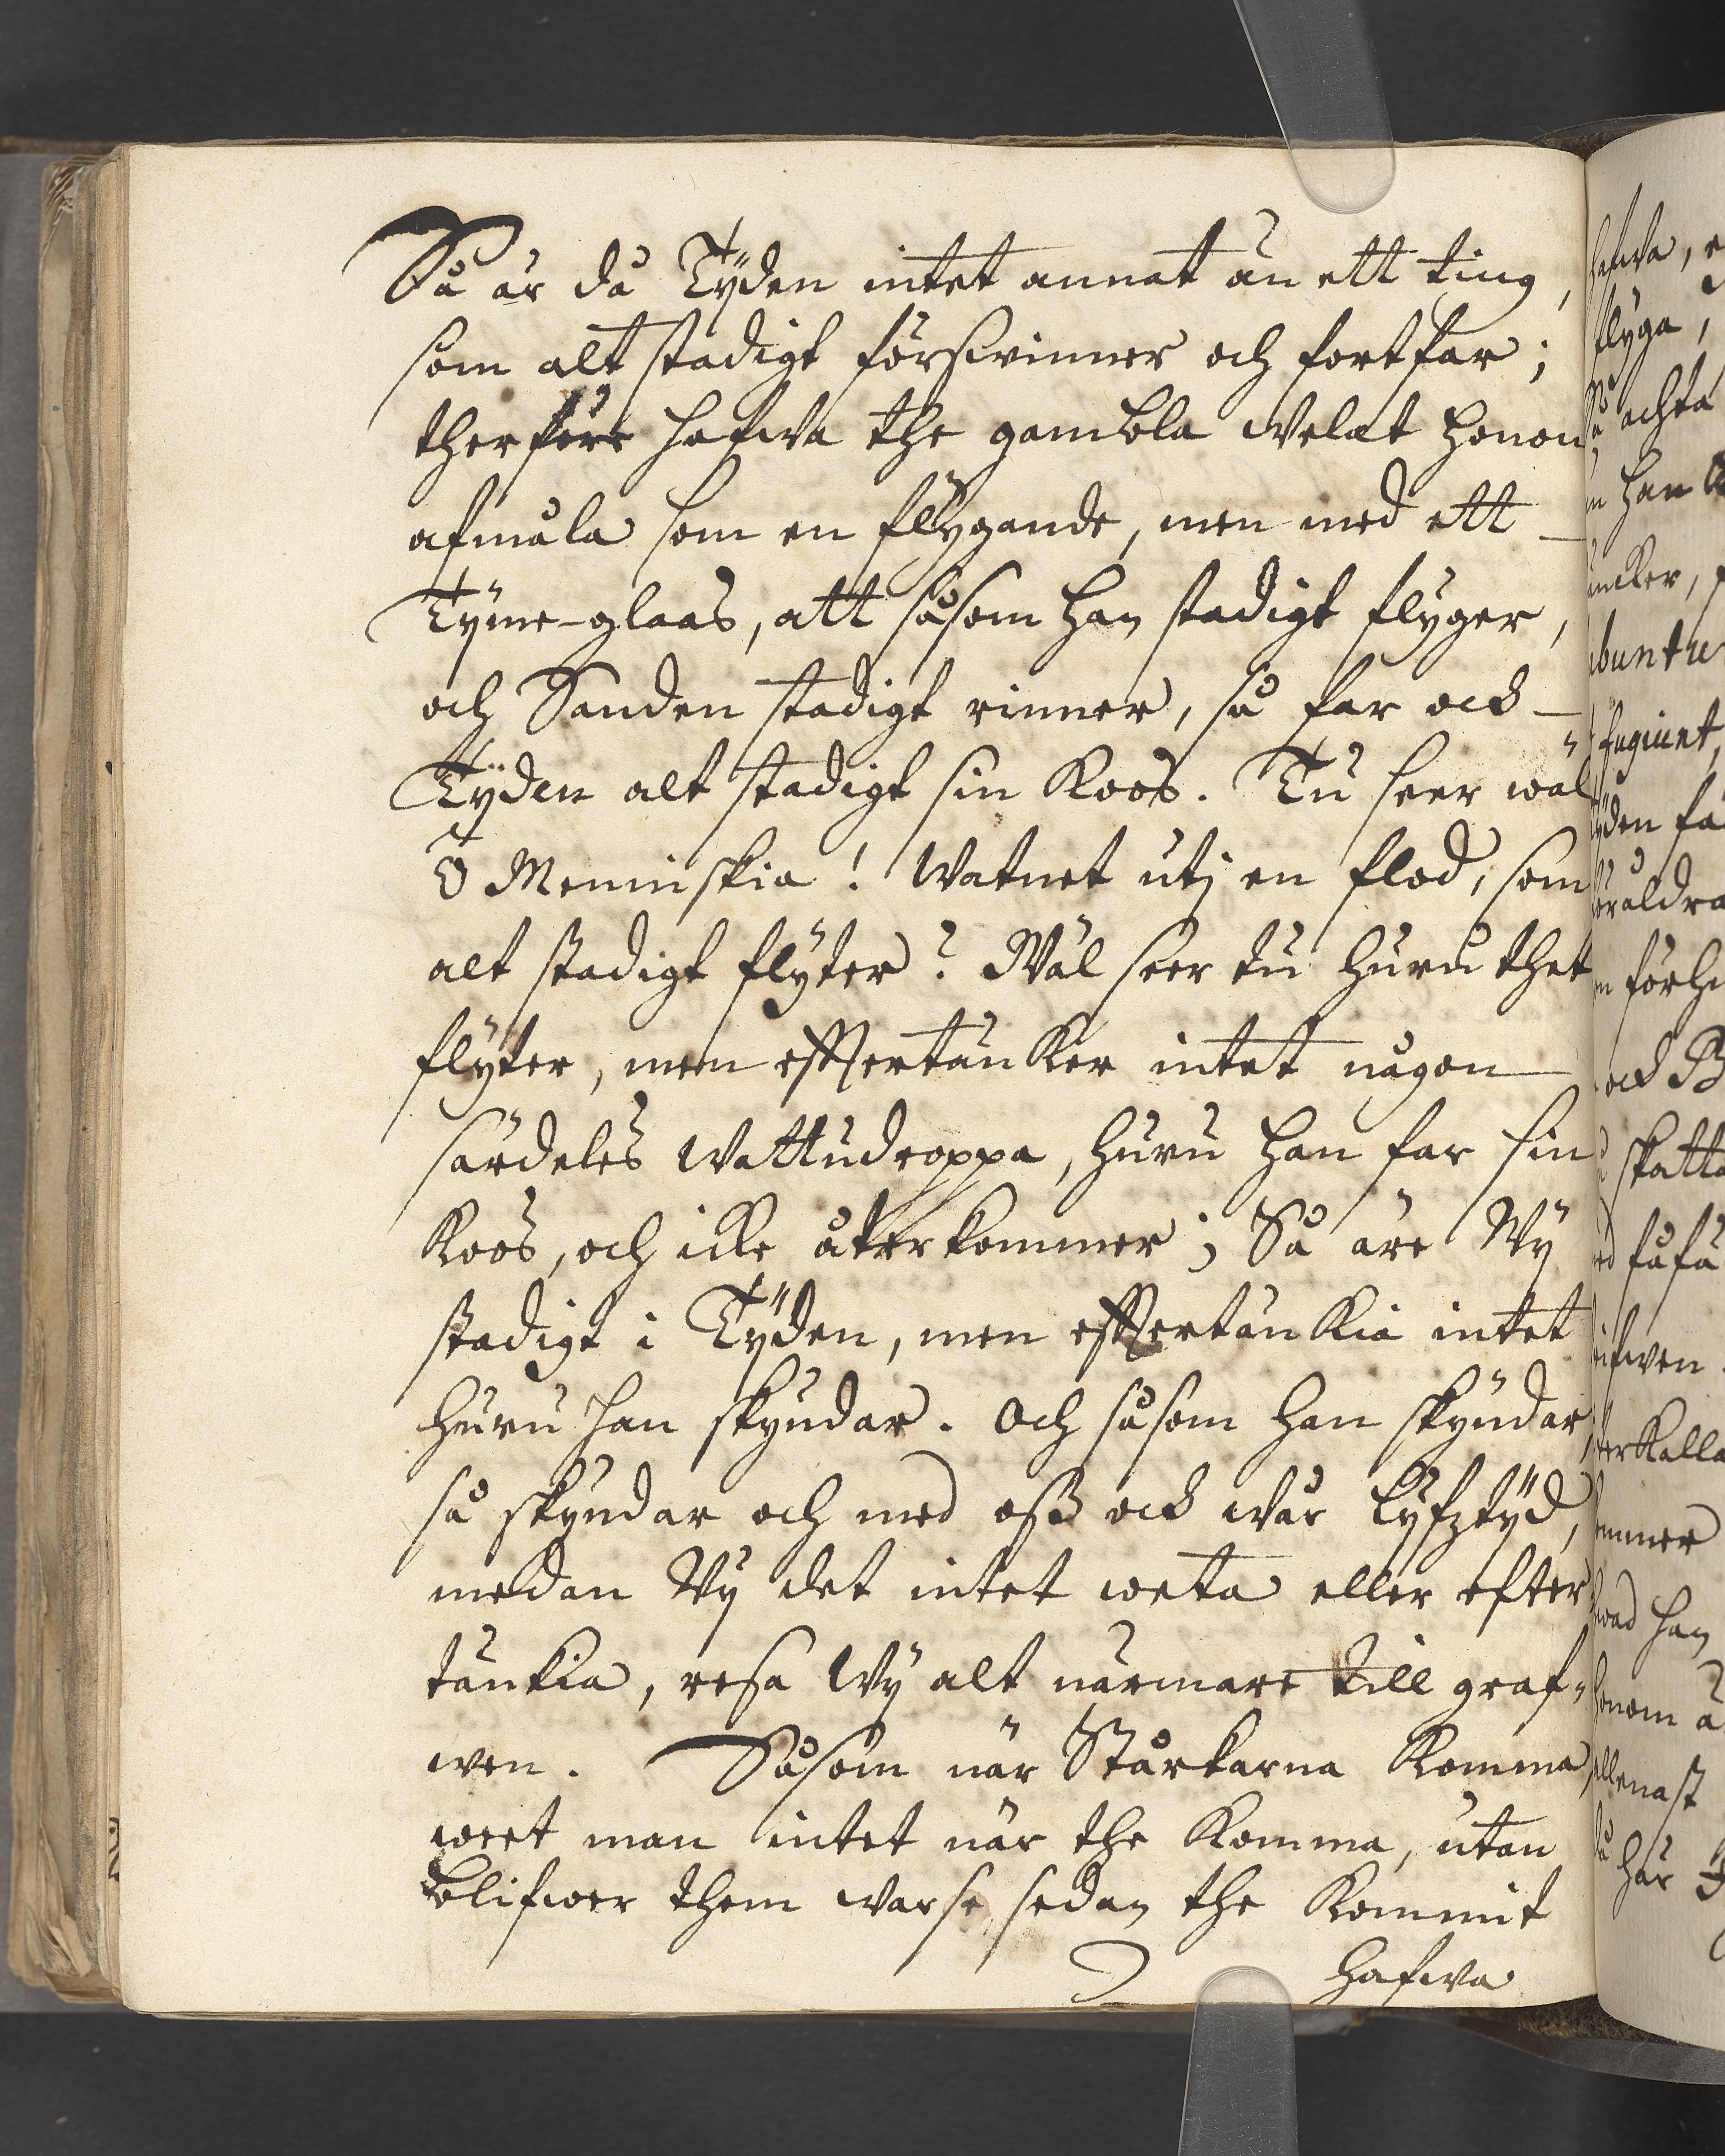 Så är då Tÿden intet annat än ett ting,
som alt stadigt försvinner och fortfar;
therföre hafwa the gambla welat honom
afmåla som en flÿgande, men med ett
Tÿme-glaas, att såsom han stadigt flÿger,
och Sanden stadigt rinner, så far ock
Tÿden alt stadigt sin Koos. Tu seer wäl
O Menniskia! Watnet utj en flod, som
alt stadigt flÿter? Wäl seer tu huru thet
flÿter, men effertäncker intet någon
särdeles Wattudroppa, huru han far sin
Koos, och icke återkommer; Så äre Wÿ
stadigt i Tÿden, men effertänckia intet
huru han skÿndar. Och såsom han skÿndar,
så skÿndar och med oss ock wår Lÿfztÿd,
medan Wÿ det intet weta eller efter
tänkia, resa Wÿ alt närmare till graf-
wen. Såsom när Storkarna Komma,
weet man intet när the Komma, utan
blifwer them warse, sedan the Kommit
hafwa
hafwa,
flyga,
achta
han
buntu
fugiunt,
förh
ock
skatta
hwad han
här